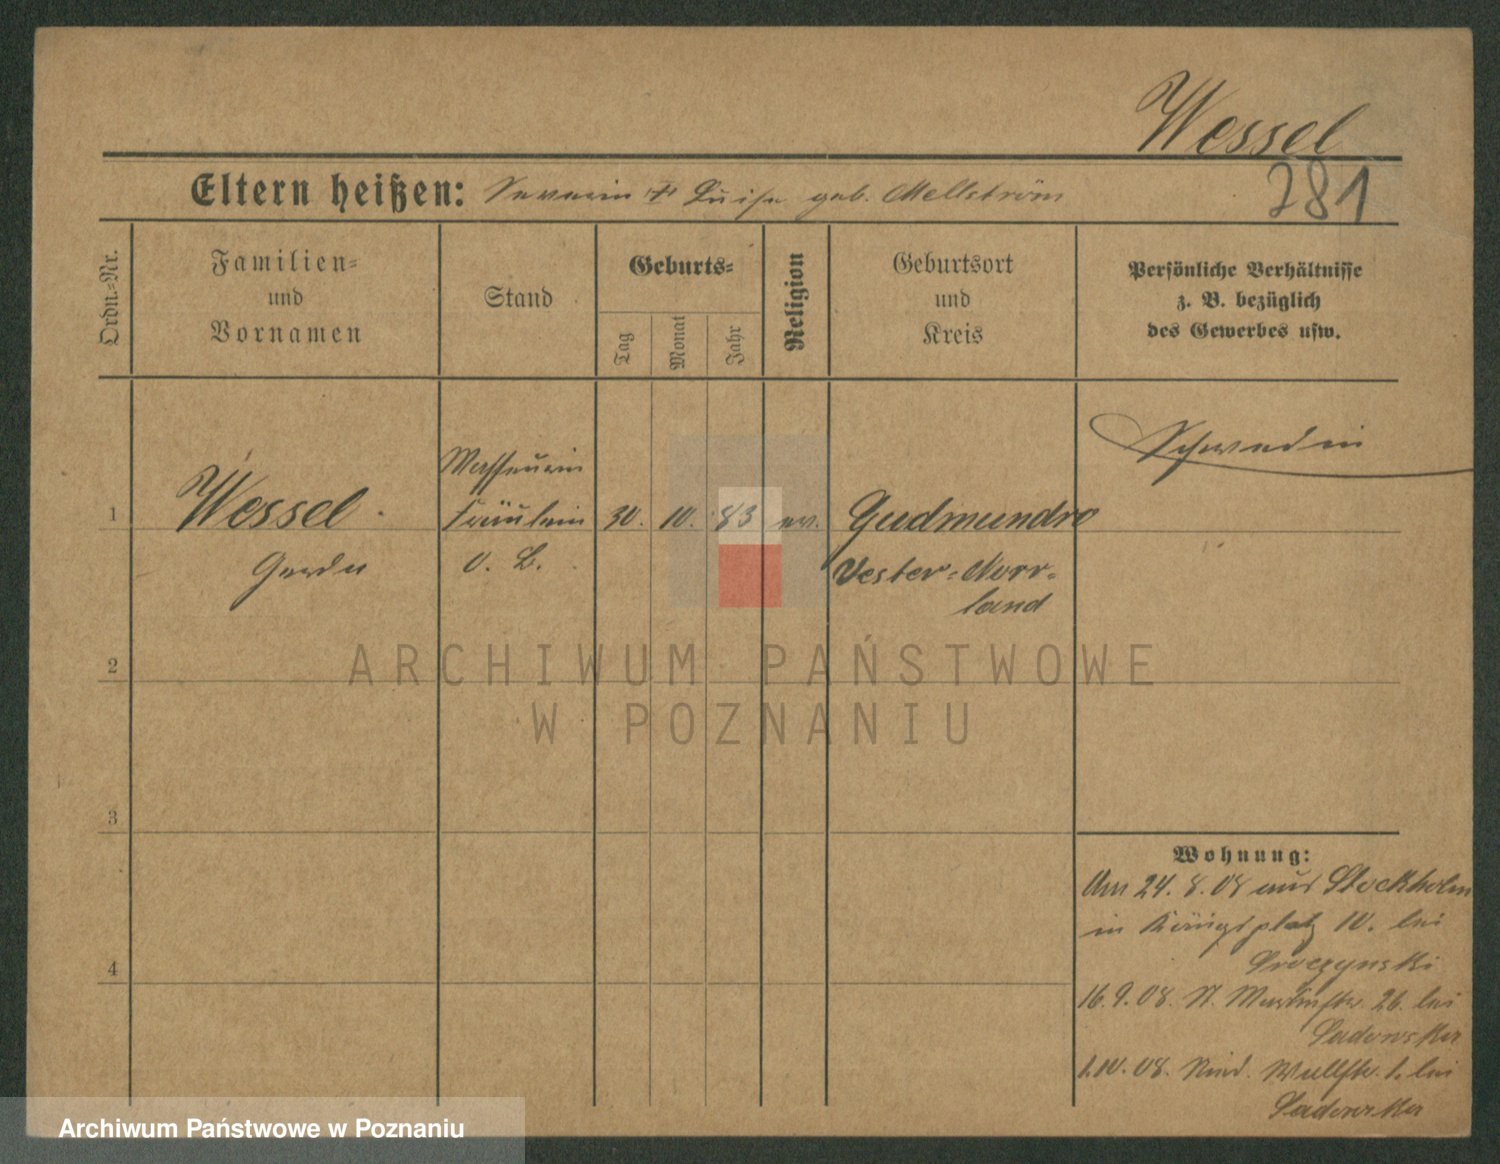 Wessel
Eltern heißen: Severin + Luise geb. Mellström
281
Ordn.-Nr.
Familien-
und
Vornamen
Stand
Geburts-
Tag
Monat
Jahr
Religion
Geburtsort
und
Kreis
Persönliche Verhältnisse
z. B. bezüglich
des Gewerbes usw.
Schwedin
1
Wessel
Gerda
Masseurin
Fräulein
o. B.
30. 10. 83 ev.
Gudmundro
Vester-Norr-
land
2
3
4
Wohnung:
Am 24.8.08 aus Stockholm
in Königsplatz 10. bei
16.9.08. St. Martinstr. 26. bei
Sadowska
1.10.08. Wallstr. 1. bei
Sadowska
ARCHIWUM PAŃSTWOWE
W POZNANIU
Archiwum Państwowe w Poznaniu